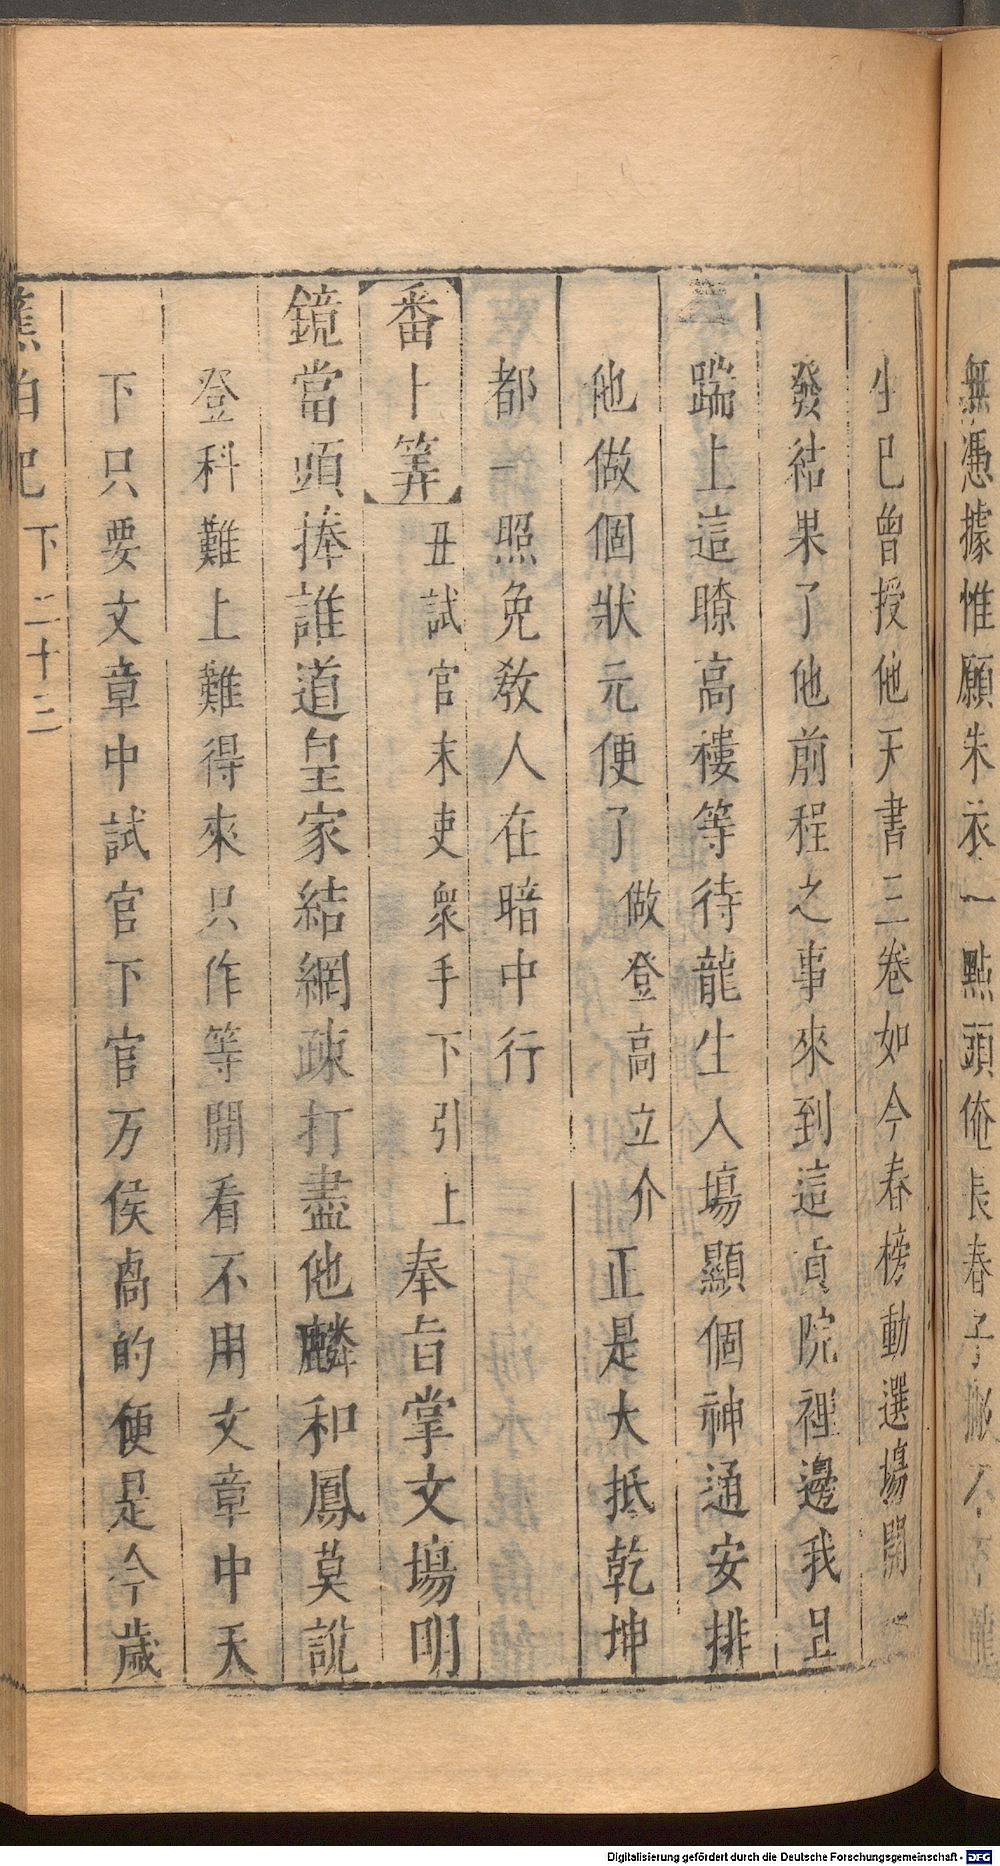 無憑據惟願朱衣一點頭俺長春子
生巳曾授他天書三卷如今春榜動選塲開
發結果了他前程之事來到這貢院裡邊我且
踹上這瞭高樓等待龍生入塲顯個神通安排
他做個狀元便了做登高立介正是大抵乾坤
都一照免敎人在暗中行
番卜筭丑試官末吏衆手下引上奉旨掌文塲明
鏡當頭捧誰道皇家結網疎打盡他麟和鳳莫說
登科難上難得來只作等閒看不用文章中天
下只要文章中試官下官万俟卨的便是今歲
蕉帕記 下 二十三
Digitalisierung gefördert durch die Deutsche Forschungsgemeinschaft - DFG